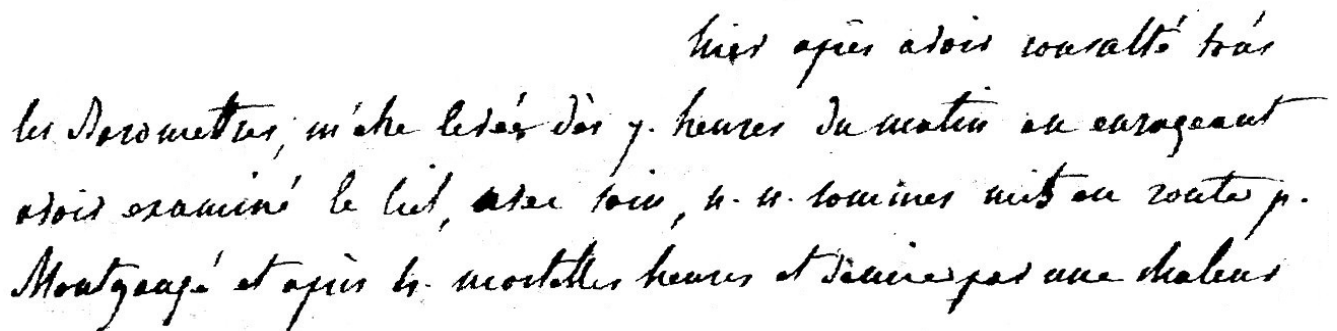 hier après avoir consulté tous
les Barometres, m'être levée dès 7. heures du matin en enrageant
avoir examiné le ciel, avec soin, n. n. sommes mis en route p.
Montgaugé et après 4. mortelles heures et demie par une chaleur